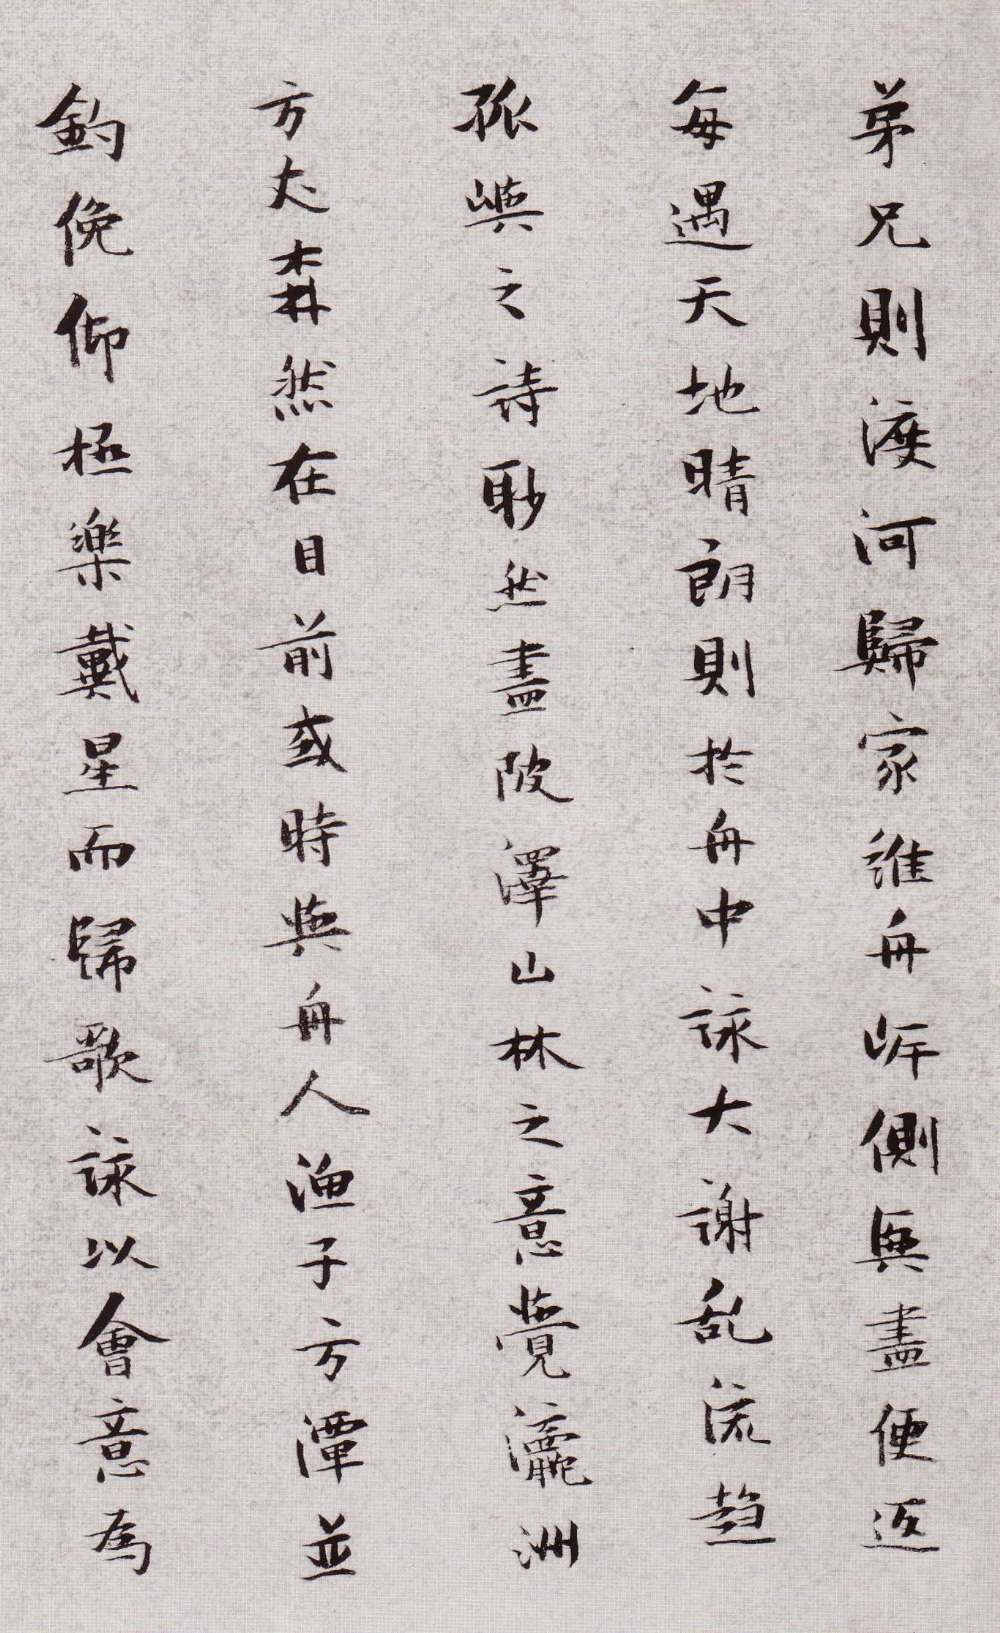 弟兄則渡河歸家維舟岍側興盡便返
每遇天地晴朗則於舟中詠大謝乱流趍
孤嶼之詩眇然盡陂澤山林之意覺瀛洲
方丈森然在目前或時與舟人漁子方潭並
釣俛仰極樂戴星而歸歌詠以會意為